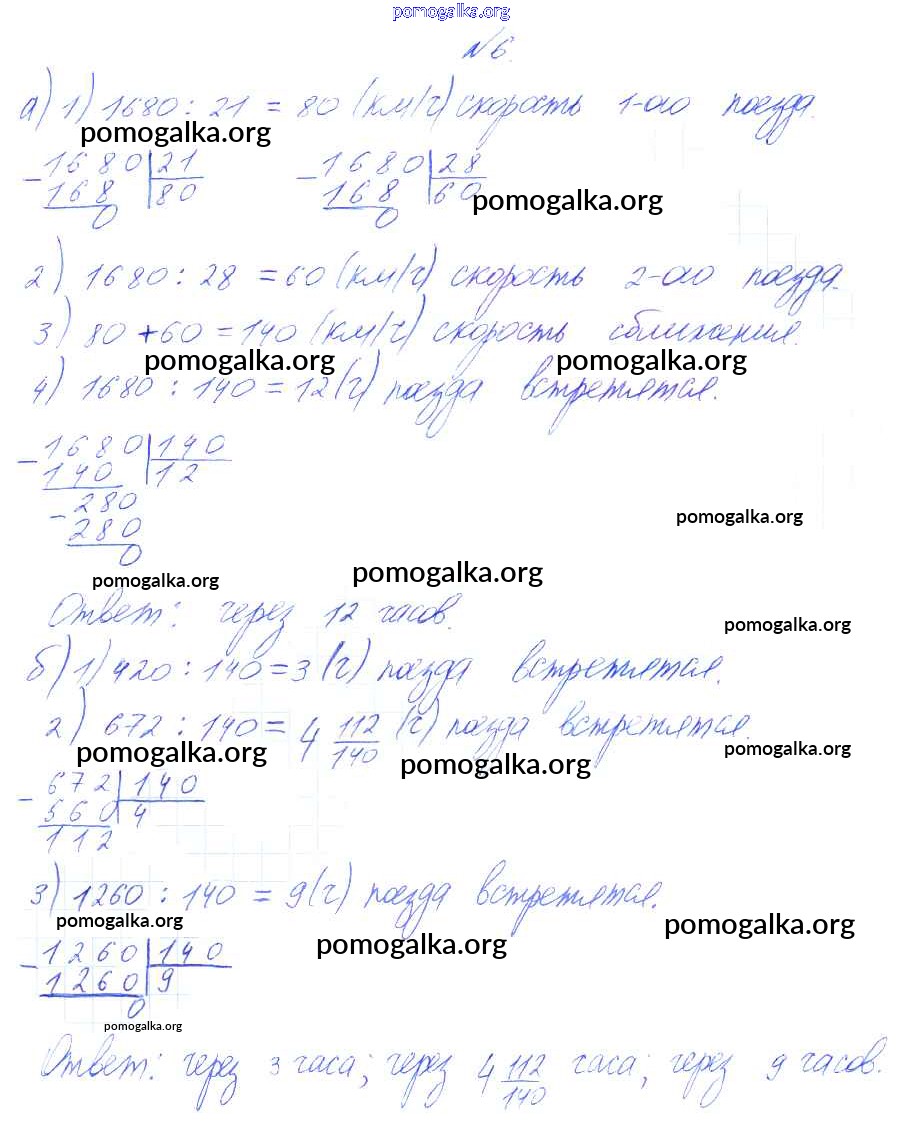 pomogalka.org
№6.
а) 1) 1680 : 21 = 80 (км/ч) скорость 1-ого поезда.
pomogalka.org
-1680|21 -1680|28
168 |80 168 |60
0 0
pomogalka.org
2) 1680 : 28 = 60 (км/ч) скорость 2-ого поезда.
3) 80 + 60 = 140 (км/ч) скорость сближения.
pomogalka.org pomogalka.org
4) 1680 : 140 = 12 (ч) поезда встретятся.
-1680|140
140 |12
-280
280
0
pomogalka.org
pomogalka.org pomogalka.org
Ответ: через 12 часов.
pomogalka.org
б) 1) 420 : 140 = 3 (ч) поезда встретятся.
2) 672 : 140 = 4 112/140 (ч) поезда встретятся.
pomogalka.org pomogalka.org pomogalka.org
-672|140
560|4
112
3) 1260 : 140 = 9 (ч) поезда встретятся.
pomogalka.org pomogalka.org pomogalka.org
-1260|140
1260|9
0
pomogalka.org
Ответ: через 3 часа; через 4 112/140 часа; через 9 часов.